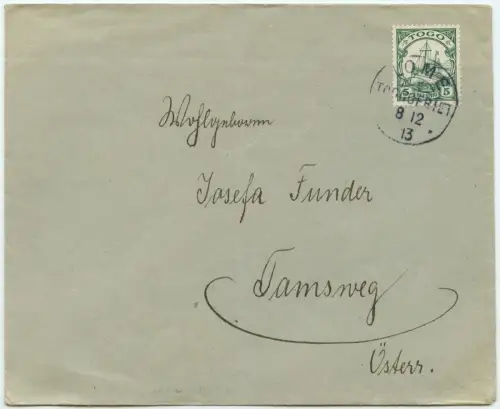 TOGO
5 5
LOME
(TOGOGEBIET)
8 12
13 *
Wohlgeboren
Josefa Funder
Tamsweg
Österr.